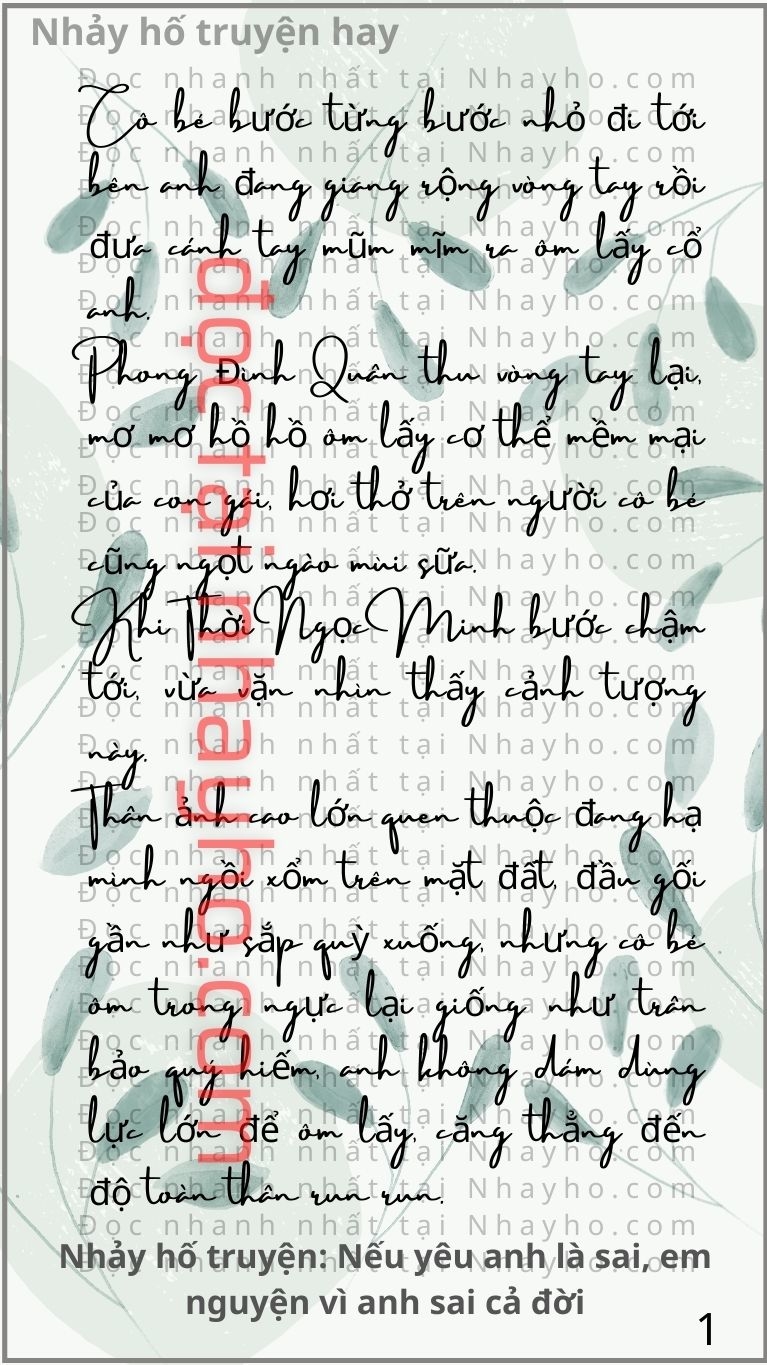 Nhảy hố truyện hay
Cô bé bước từng bước nhỏ đi tới
bên anh đang giang rộng vòng tay rồi
đưa cánh tay mũm mĩm ra ôm lấy cổ
anh.
Phong Đình Quân thu vòng tay lại,
mơ mơ hồ hồ ôm lấy cơ thể mềm mại
của con gái, hơi thở trên người cô bé
cũng ngọt ngào mùi sữa.
Khi Thời Ngọc Minh bước chậm
tới, vừa vặn nhìn thấy cảnh tượng
này.
Thân ảnh cao lớn quen thuộc đang hạ
mình ngồi xổm trên mặt đất, đầu gối
gần như sắp quỳ xuống, nhưng cô bé
ôm trong ngực lại giống như trân
bảo quý hiếm, anh không dám dùng
lực lớn để ôm lấy, căng thẳng đến
độ toàn thân run run.
đọc tại nhayho.com
Đọc nhanh nhất tại Nhayho.com
Nhảy hố truyện: Nếu yêu anh là sai, em
nguyện vì anh sai cả đời
1